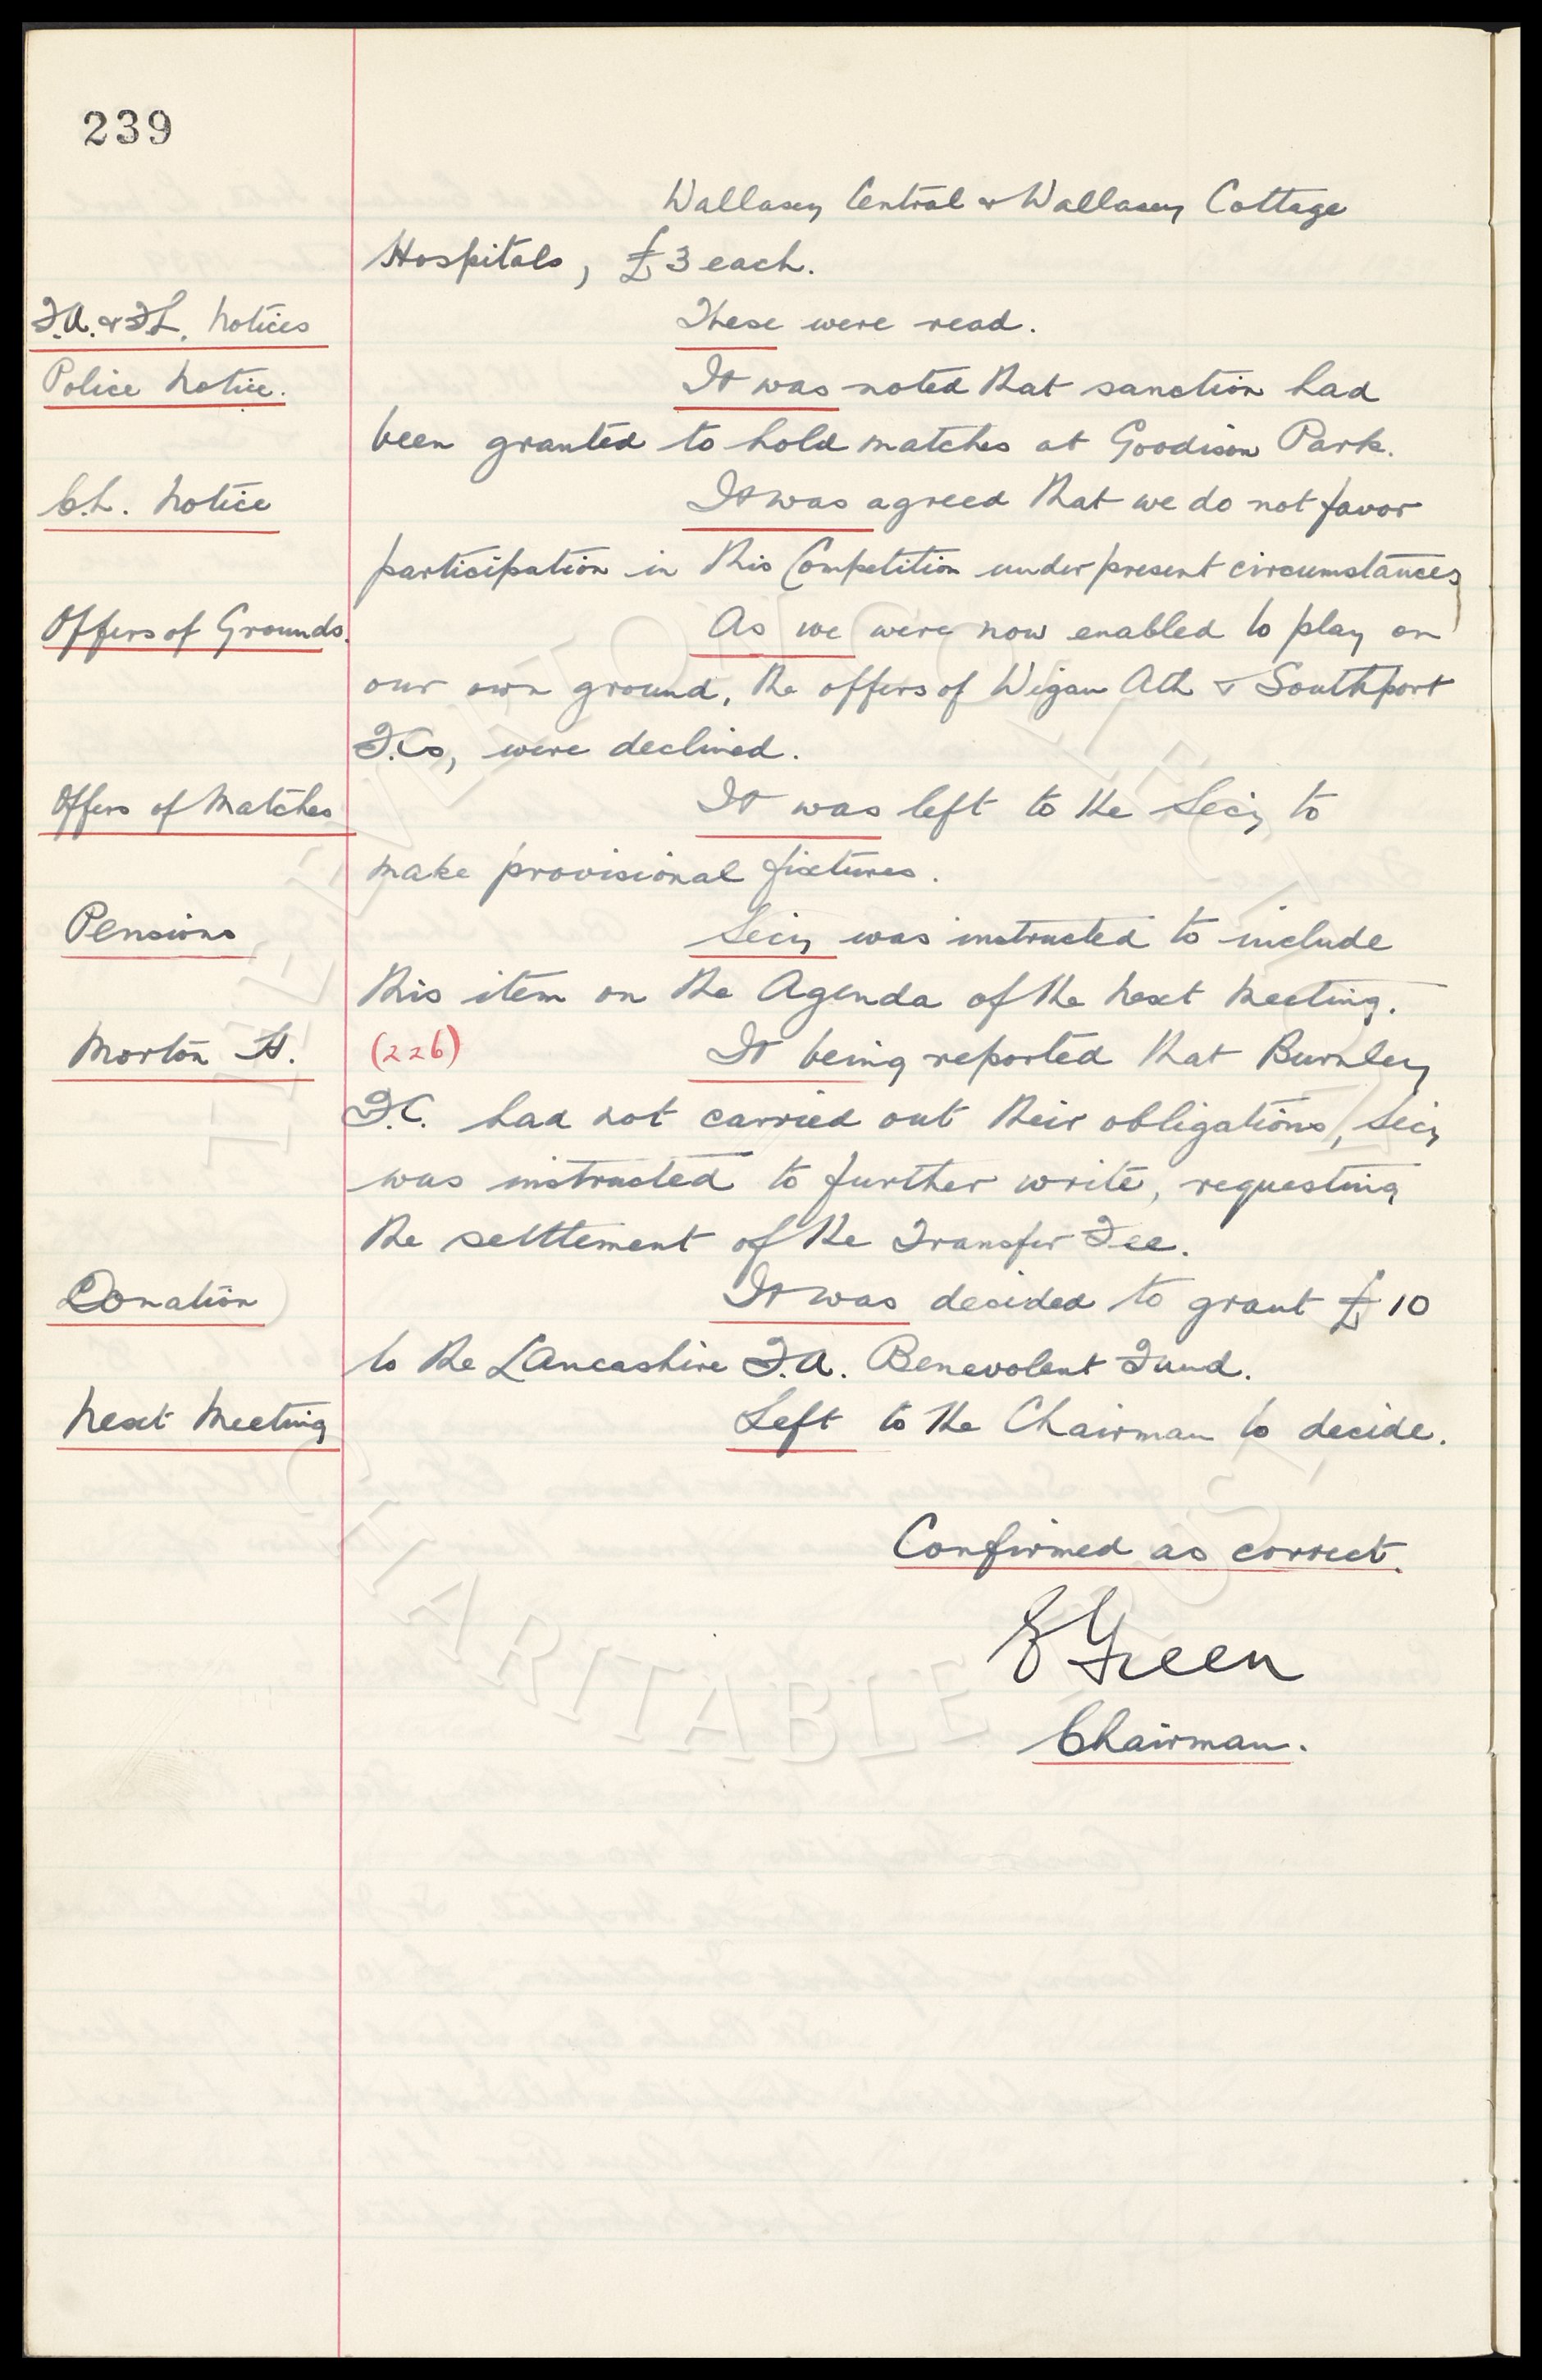 239
Wallasey Central & Wallasey Cottage
Hospitals, £3 each.
F.A. & F.L. Notices These were read.
Police Notice. It was noted that sanction had
been granted to hold matches at Goodison Park.
C.L. Notice It was agreed that we do not favor
participation in this Competition under present circumstances
Offers of Grounds. As we were now enabled to play on
our own ground, the offers of Wigan Ath & Southport
F.Cs, were declined.
Offers of Matches It was left to the Secy to
make provisional fixtures.
Pensions Secy was instructed to include
this item on the Agenda of the next Meeting.
Morton H. (226) It being reported that Burnley
F.C. had not carried out their obligations, Secy
was instructed to further write, requesting
the settlement of the Transfer Fee.
Donation It was decided to grant £10
to the Lancashire F.A. Benevolent Fund.
Next Meeting Left to the Chairman to decide.
Confirmed as correct.
E Green
Chairman.